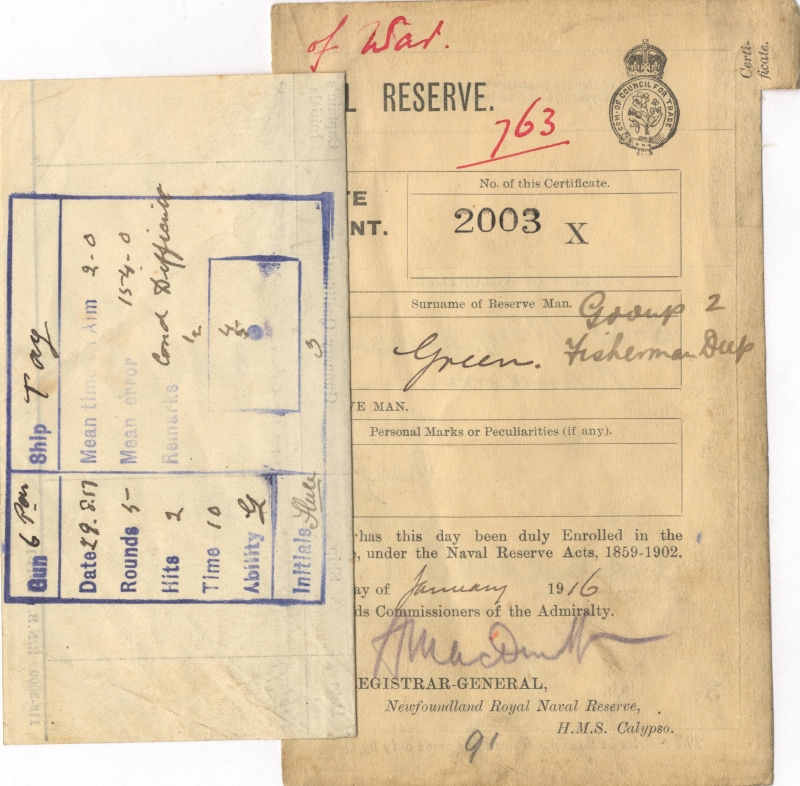 of War.
L RESERVE.
763
COM: OF COUNCIL FOR TRADE
Certi-
ficate.
TE
NT.
No. of this Certificate.
2003 X
Surname of Reserve Man.
Group 2
Green. Fisherman Deep
VE MAN.
Personal Marks or Peculiarities (if any).
has this day been duly Enrolled in the
, under the Naval Reserve Acts, 1859-1902.
ay of January 1916
ds Commissioners of the Admiralty.
EGISTRAR-GENERAL,
Newfoundland Royal Naval Reserve,
H.M.S. Calypso.
91
Gun 6 Ship
Date 29.8.17 Mean time of Aim 2-0
Rounds 5 Mean error 154-0
Hits 2 Remarks Cond Difficult
Time 10 1/2
Ability G
Initials
3